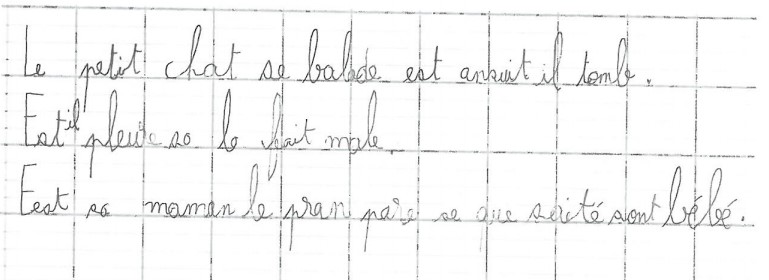 Le petit chat se balade est ansuit il tombe.
Est il pleure sa le fait male.
Eest sa maman le pran parse se que sérité sont bébé.